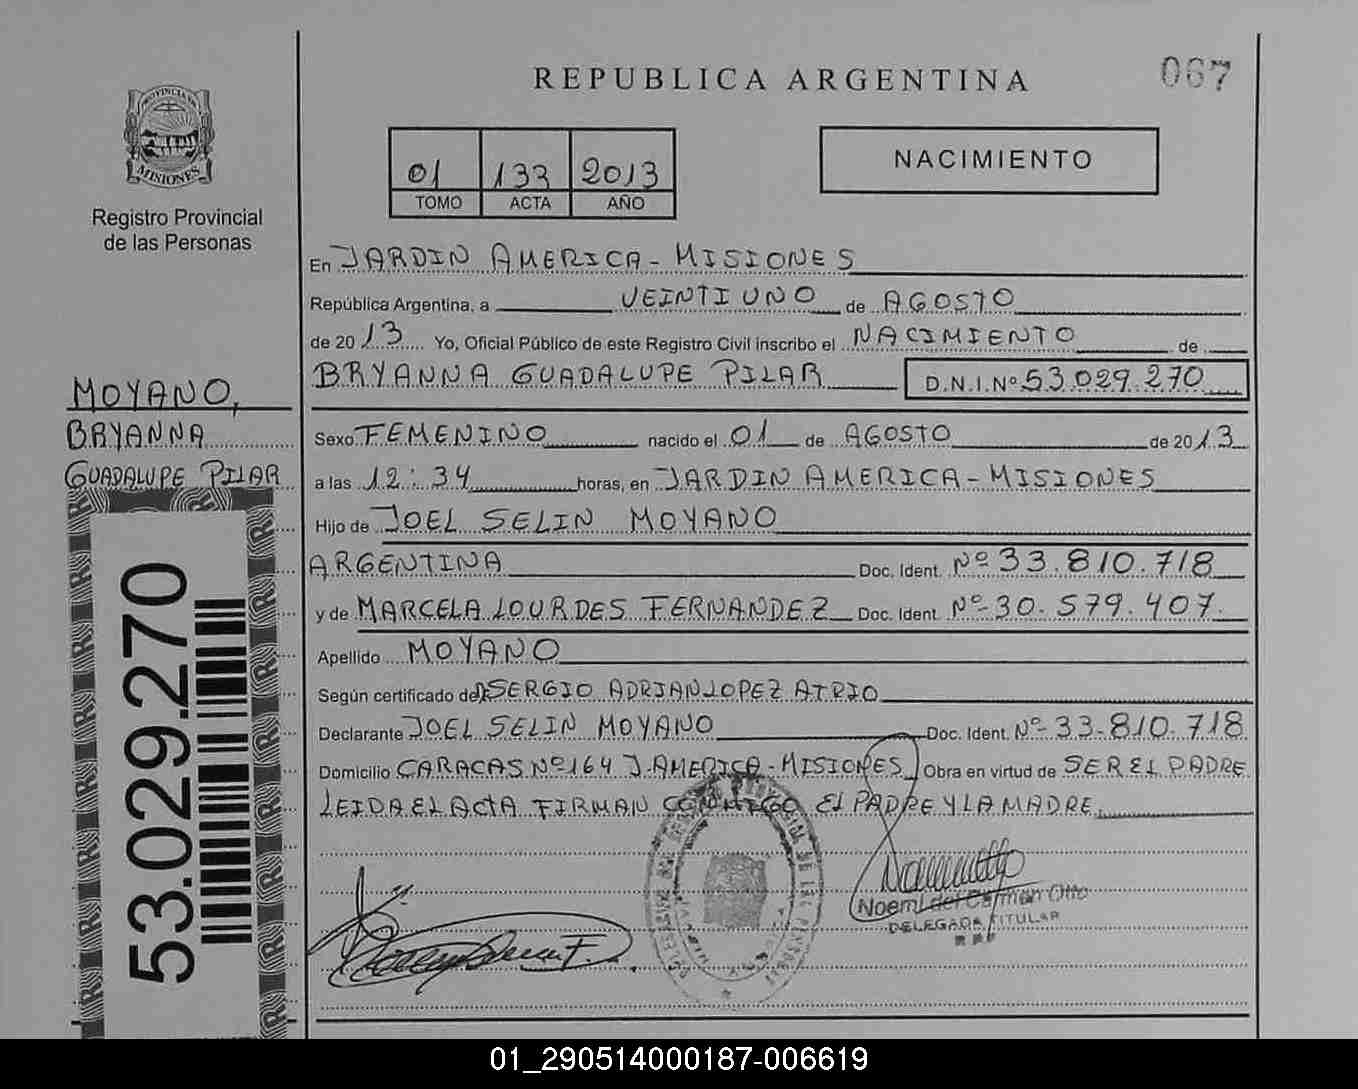 REPUBLICA ARGENTINA
067
PROVINCIA DE
MISIONES
Registro Provincial
de las Personas
01 133 2013
TOMO ACTA AÑO
NACIMIENTO
En JARDIN AMERICA - MISIONES
República Argentina, a VEINTIUNO de AGOSTO
de 2013 Yo, Oficial Público de este Registro Civil inscribo el NACIMIENTO de
BRYANNA GUADALUPE PILAR D.N.I. Nº 53.029.270
MOYANO,
BRYANNA
GUADALUPE PILAR
Sexo FEMENINO nacido el 01 de AGOSTO de 2013
a las 12:34 horas, en JARDIN AMERICA - MISIONES
Hijo de JOEL SELIN MOYANO
ARGENTINA Doc. Ident. Nº 33.810.718
y de MARCELA LOURDES FERNANDEZ Doc. Ident. Nº 30.579.407.
Apellido MOYANO
Según certificado de SERGIO ADRIAN LOPEZ ATRIO
Declarante JOEL SELIN MOYANO Doc. Ident. Nº 33.810.718
Domicilio CARACAS Nº 164 J. AMERICA - MISIONES Obra en virtud de SER EL PADRE
LEIDA EL ACTA FIRMAN CONMIGO EL PADRE Y LA MADRE
53.029.270
Noemi del Carmen Otto
DELEGADA TITULAR
01_290514000187-006619